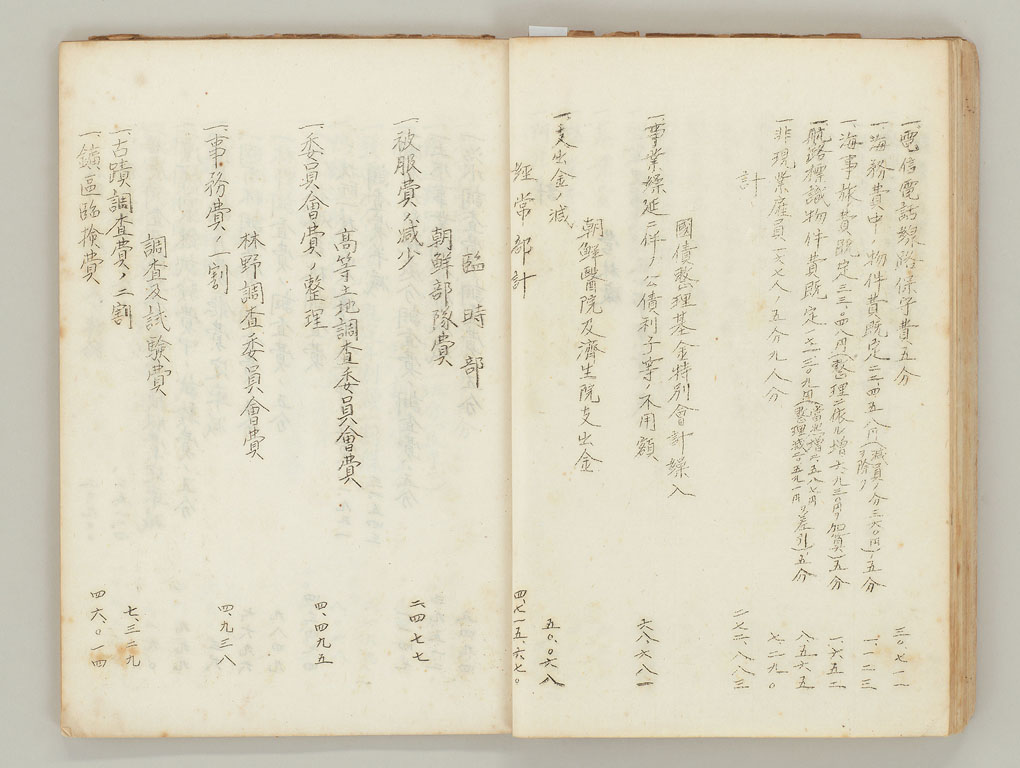 一、電信電話線路保守費五分 三〇、七一一
一、海務費中ノ物件費既定二二、四五八円(減員ノ分三六〇円ヲ除ク)ノ五分 一、一二三
一、海事旅費既定三三、〇四円(整理ニ依ル増六、九三〇円ヲ加算)五分 一、六五二
一、航路標識物件費既定 五分 八、五六五
一、非現業雇員一七七人ノ五分九人分 七、二九〇
計 二七二、八八三
國債整理基金特別會計繰入
一、事業繰延ニ伴ノ公債利子等ノ不用額 六八六八一
朝鮮醫院及濟生院支出金
一、支出金ノ減 五〇、〇六八
經常部計 四、七一五、六七〇
臨時部
朝鮮部隊費
一、被服費ノ減少 二四七七
高等土地調査委員會費
一、委員會費ノ整理 四、四九五
林野調査委員會費
一、事務費ノ一割 四、九三八
調査及試驗費
一、古蹟調査費ノ二割 七、三二九
一、鑛區臨檢費 四六、〇一四